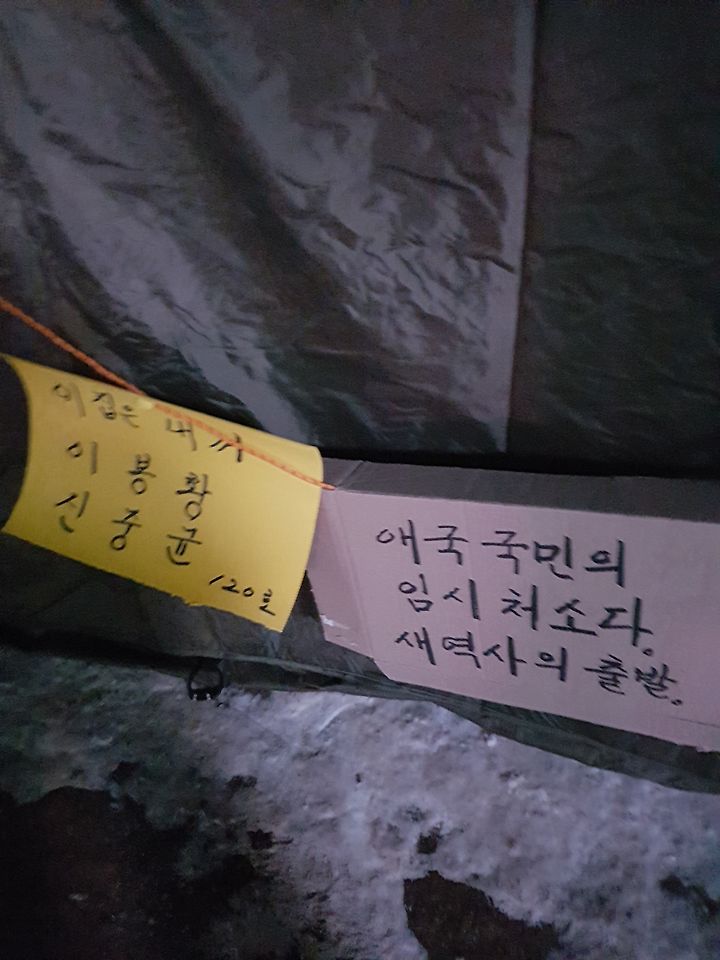 이 집은 내꺼
이봉황
신중균
120호
애국 국민의
임시 처소다.
새역사의 출발.